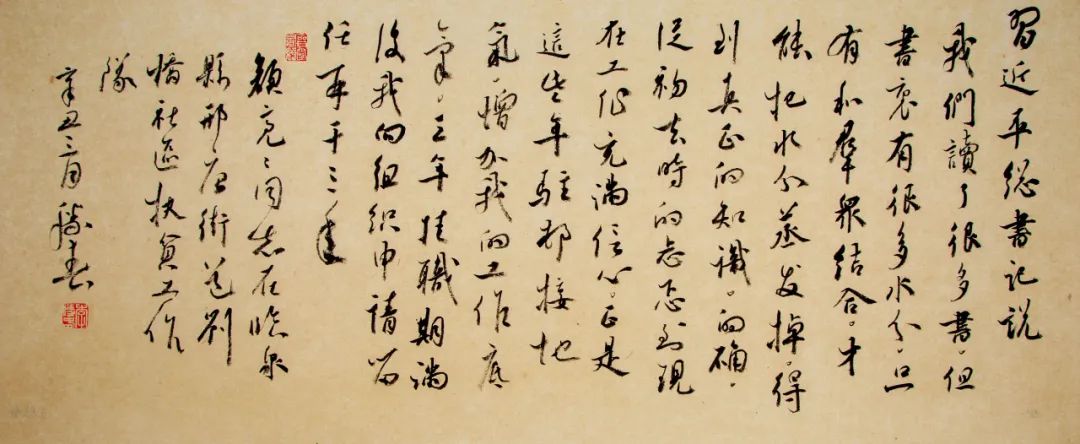 習近平总書記説
我們讀了很多書，但
書裏有很多水分，只
有和羣眾结合，才
能把水分蒸发掉，得
到真正的知識。的确，
從初去時的忐忑到現
在工作充满信心，正是
這些年駐邨接地
氣，增加我的工作底
氣。三年挂職期满
後我向组织申請留
任再干三年
颜亮亮同志在臨泉
縣邢塘街道劉
橋社區扶貧工作
隊
辛丑三月